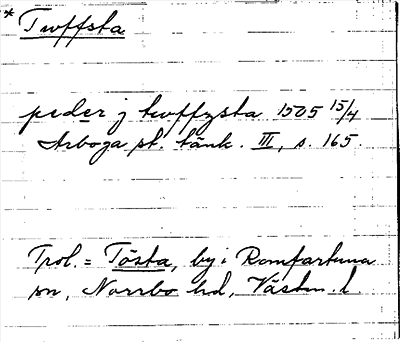 * Twffsta
peder j twffzsta 1505 15/4
Arboga st. tänk. III, s. 165.
Trol. = Tösta, by i Romfartuna
sn, Norrbo hd, Västm. l.